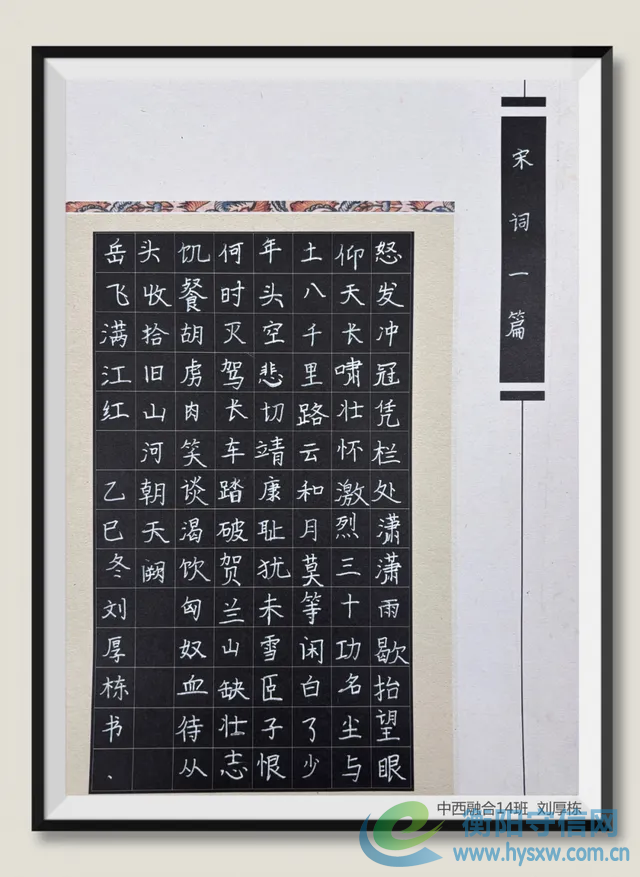 宋词一篇
怒发冲冠凭栏处潇潇雨歇抬望眼
仰天长啸壮怀激烈三十功名尘与
土八千里路云和月莫等闲白了少
年头空悲切靖康耻犹未雪臣子恨
何时灭驾长车踏破贺兰山缺壮志
饥餐胡虏肉笑谈渴饮匈奴血待从
头收拾旧山河朝天阙
岳飞满江红 乙巳冬刘厚栋书、
中西融合14班 刘厚栋
衡阳守信网
www.hysxw.com.cn